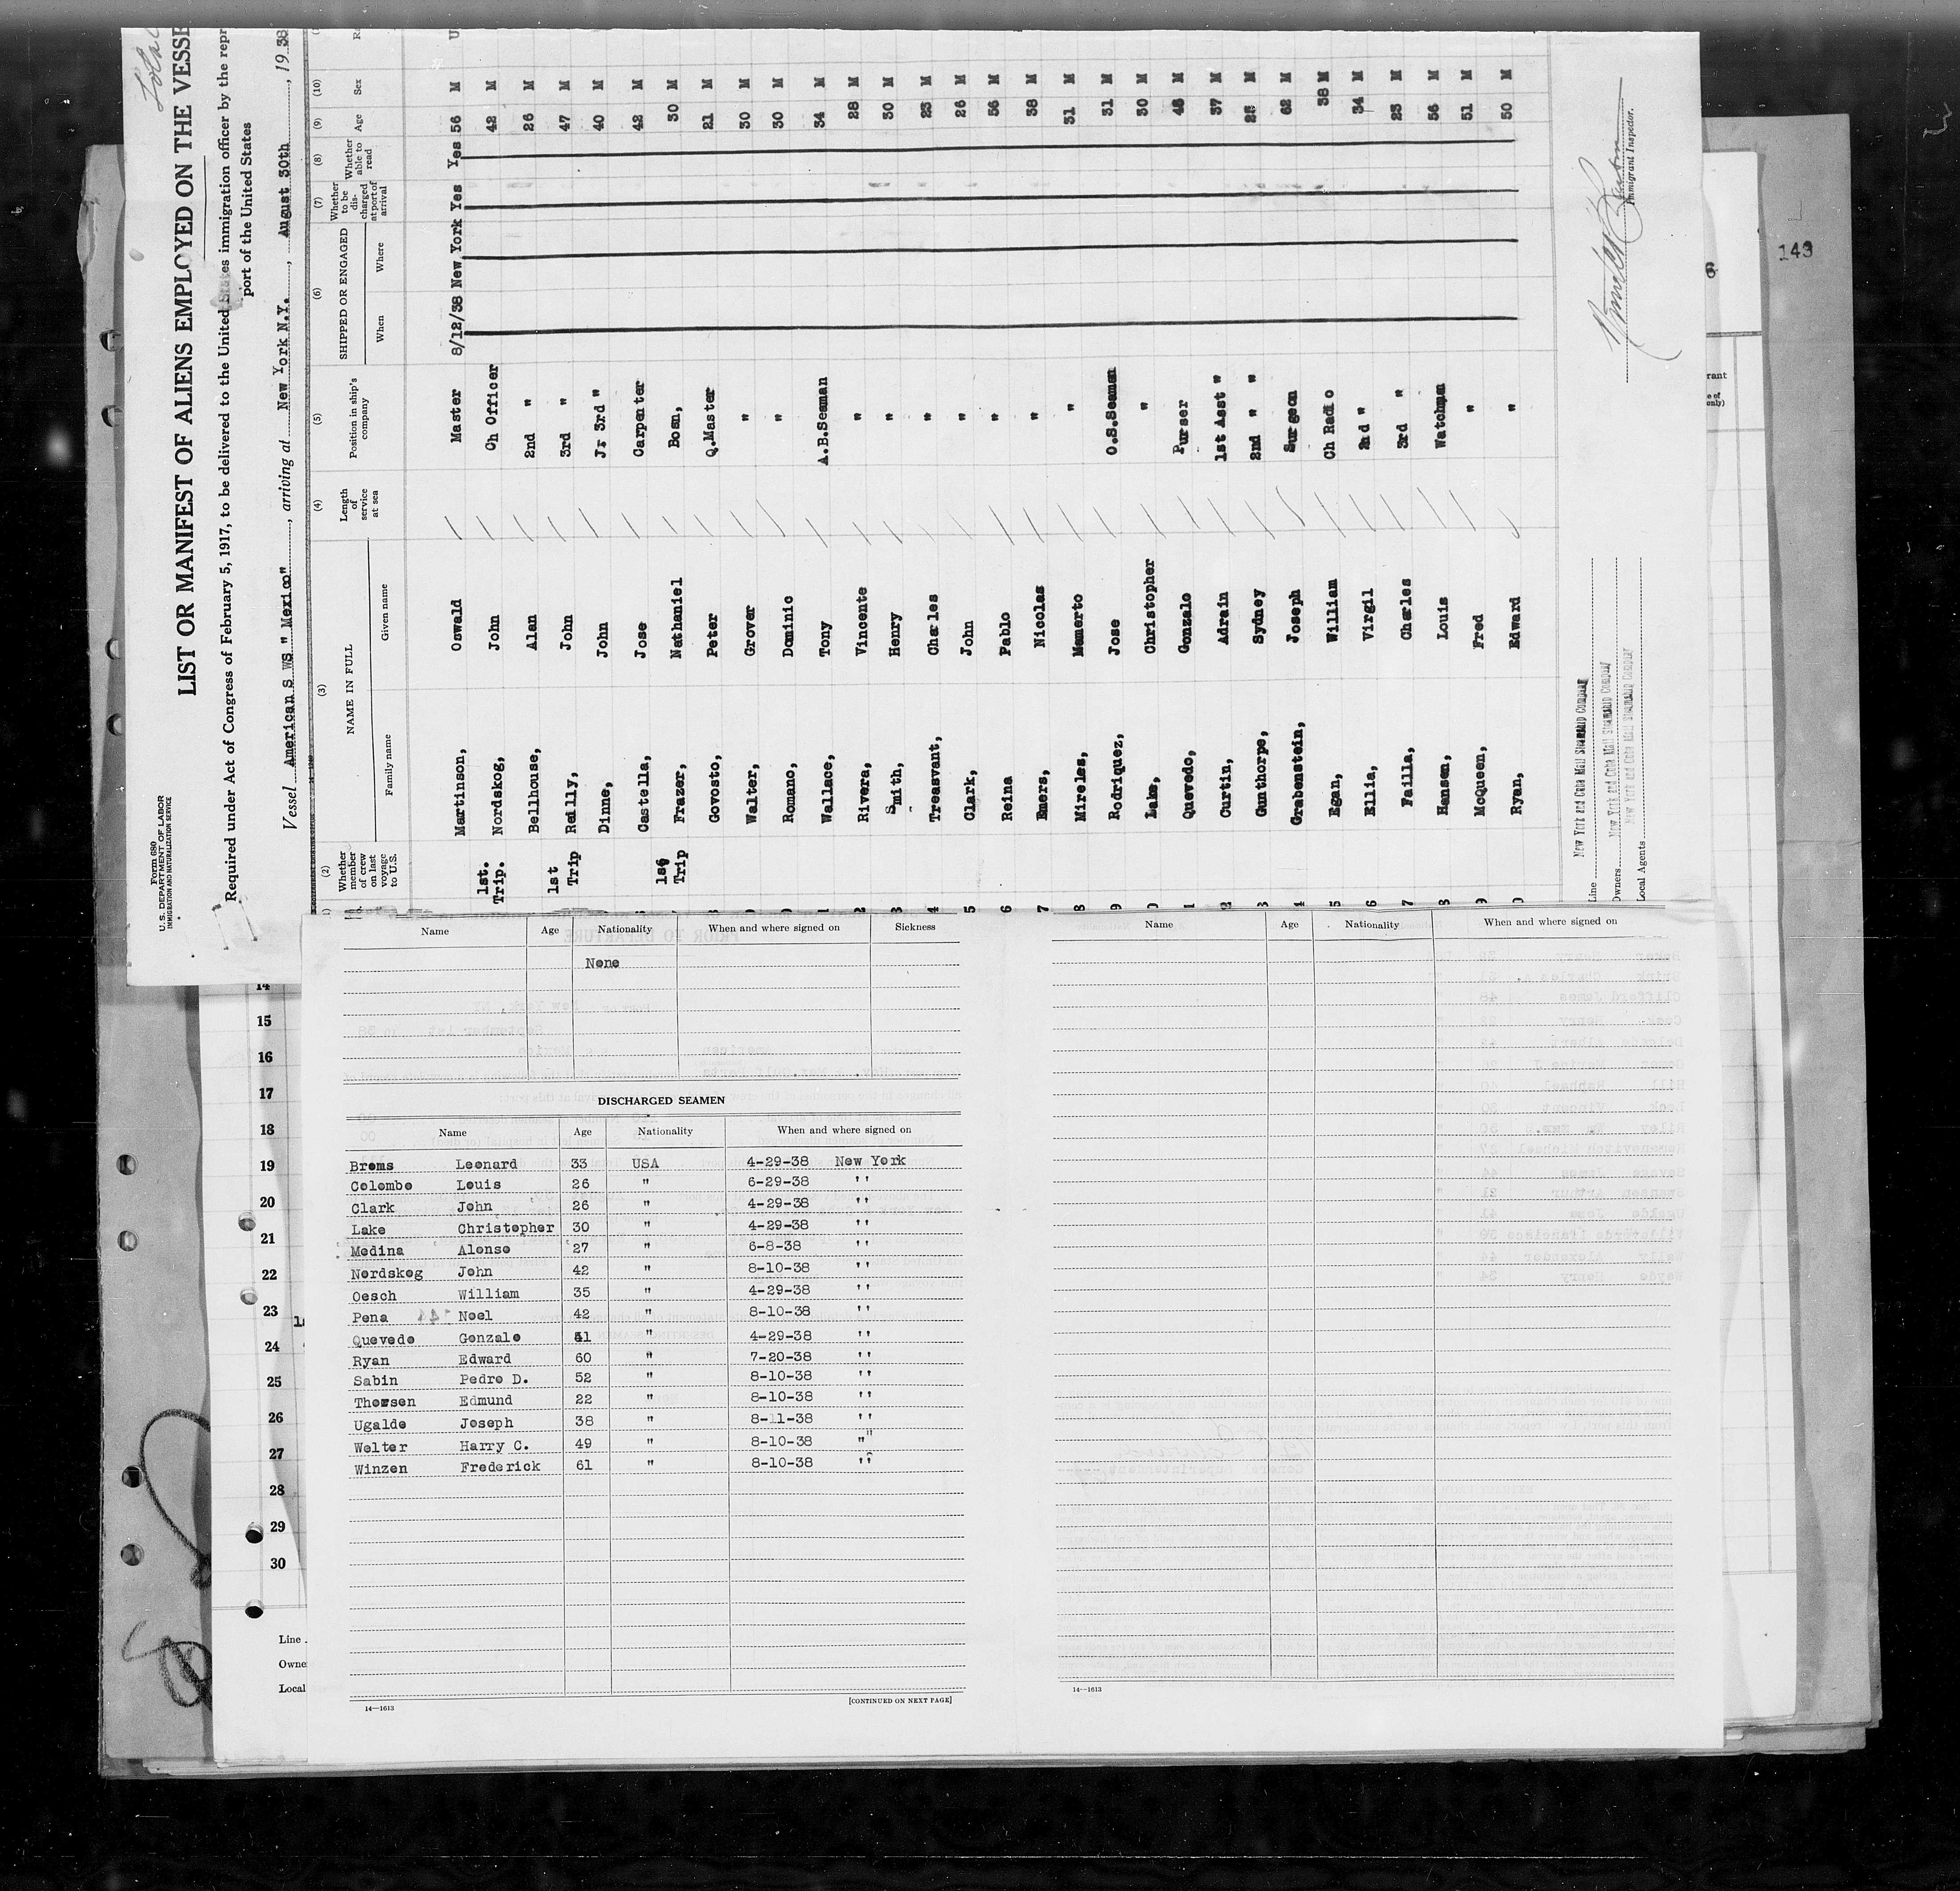 Form 680
U. S. DEPARTMENT OF LABOR
IMMIGRATION AND NATURALIZATION SERVICE
LIST OR MANIFEST OF ALIENS EMPLOYED ON THE VESSE
Required under Act of Congress of February 5, 1917, to be delivered to the United States immigration officer by the repr
port of the United States
Vessel American S WS " Mexico" , arriving at New York N.Y. , August 30th , 19 38
(2) (3) (4) (5) (6) (7) (8) (9) (10)
Whether member of crew on last voyage to U.S. NAME IN FULL Length of service at sea Position in ship's company SHIPPED OR ENGAGED Whether to be discharged at port of arrival Whether able to read Age Sex
Family name Given name When Where
Martinson, Oswald Master 8/12/38 New York Yes Yes 56 M U
1st. Trip. Nordskog, John Ch Officer 42 M
Bellhouse, Alan 2nd " 26 M
1st Trip Reilly, John 3rd " 47 M
Dinne, John Jr 3rd " 40 M
Castella, Jose Carpenter 42 M
1st Trip Frazer, Nathaniel Bosn, 30 M
8 Govosto, Peter Q.Master 21 M
9 Walter, Grover " 30 M
0 Romano, Dominic " 30 M
1 Wallace, Tony A.B.Seaman 34 M
2 Rivera, Vincente " 28 M
3 Smith, Henry " 30 M
4 Treasvant, Charles " 23 M
5 Clark, John " 26 M
6 Reina Pablo " 56 M
7 Emers, Nicolas " 38 M
8 Mireles, Memerto " 31 M
9 Rodriquez, Jose O.S.Seaman 31 M
0 Lake, Christopher " 30 M
1 Quevedo, Gonzalo Purser M
2 Curtin, Adrain 1st Asst " 37 M
3 Gunthorpe, Sydney 2nd " " M
4 Grabenstein, Joseph Surgeon 62 M
5 Egan, William Ch Radio 38 M
6 Ellia, Virgil 2nd " 34 M
7 Failla, Charles 3rd " 23 M
8 Hansen, Louis Watchman 56 M
9 McQueen, Fred " 51 M
0 Ryan, Edward " 50 M
Line New York and Cuba Mail Steamship Company
Owners New York and Cuba Mail Steamship Company
Local Agents New York and Cuba Mail Steamship Company
Immigrant Inspector.
143
Name Age Nationality When and where signed on Sickness
None
DISCHARGED SEAMEN
Name Age Nationality When and where signed on
Broms Leonard 33 USA 4-29-38 New York
Colombo Louis 26 " 6-29-38 ''
Clark John 26 " 4-29-38 ''
Lake Christopher 30 " 4-29-38 ''
Medina Alonso 27 " 6-8-38 ''
Nordskog John 42 " 8-10-38 ''
Oesch William 35 " 4-29-38 ''
Pena Noel 42 " 8-10-38 ''
Quevedo Gonzalo 41 " 4-29-38 ''
Ryan Edward 60 " 7-20-38 ''
Sabin Pedro D. 52 " 8-10-38 ''
Thorsen Edmund 22 " 8-10-38 ''
Ugalde Joseph 38 " 8-11-38 ''
Welter Harry C. 49 " 8-10-38 "
Winzen Frederick 61 " 8-10-38 ''
14—1613
[CONTINUED ON NEXT PAGE]
Name Age Nationality When and where signed on
14—1613
14
15
16
17
18
19
20
21
22
23
24
25
26
27
28
29
30
Line
Owne
Local